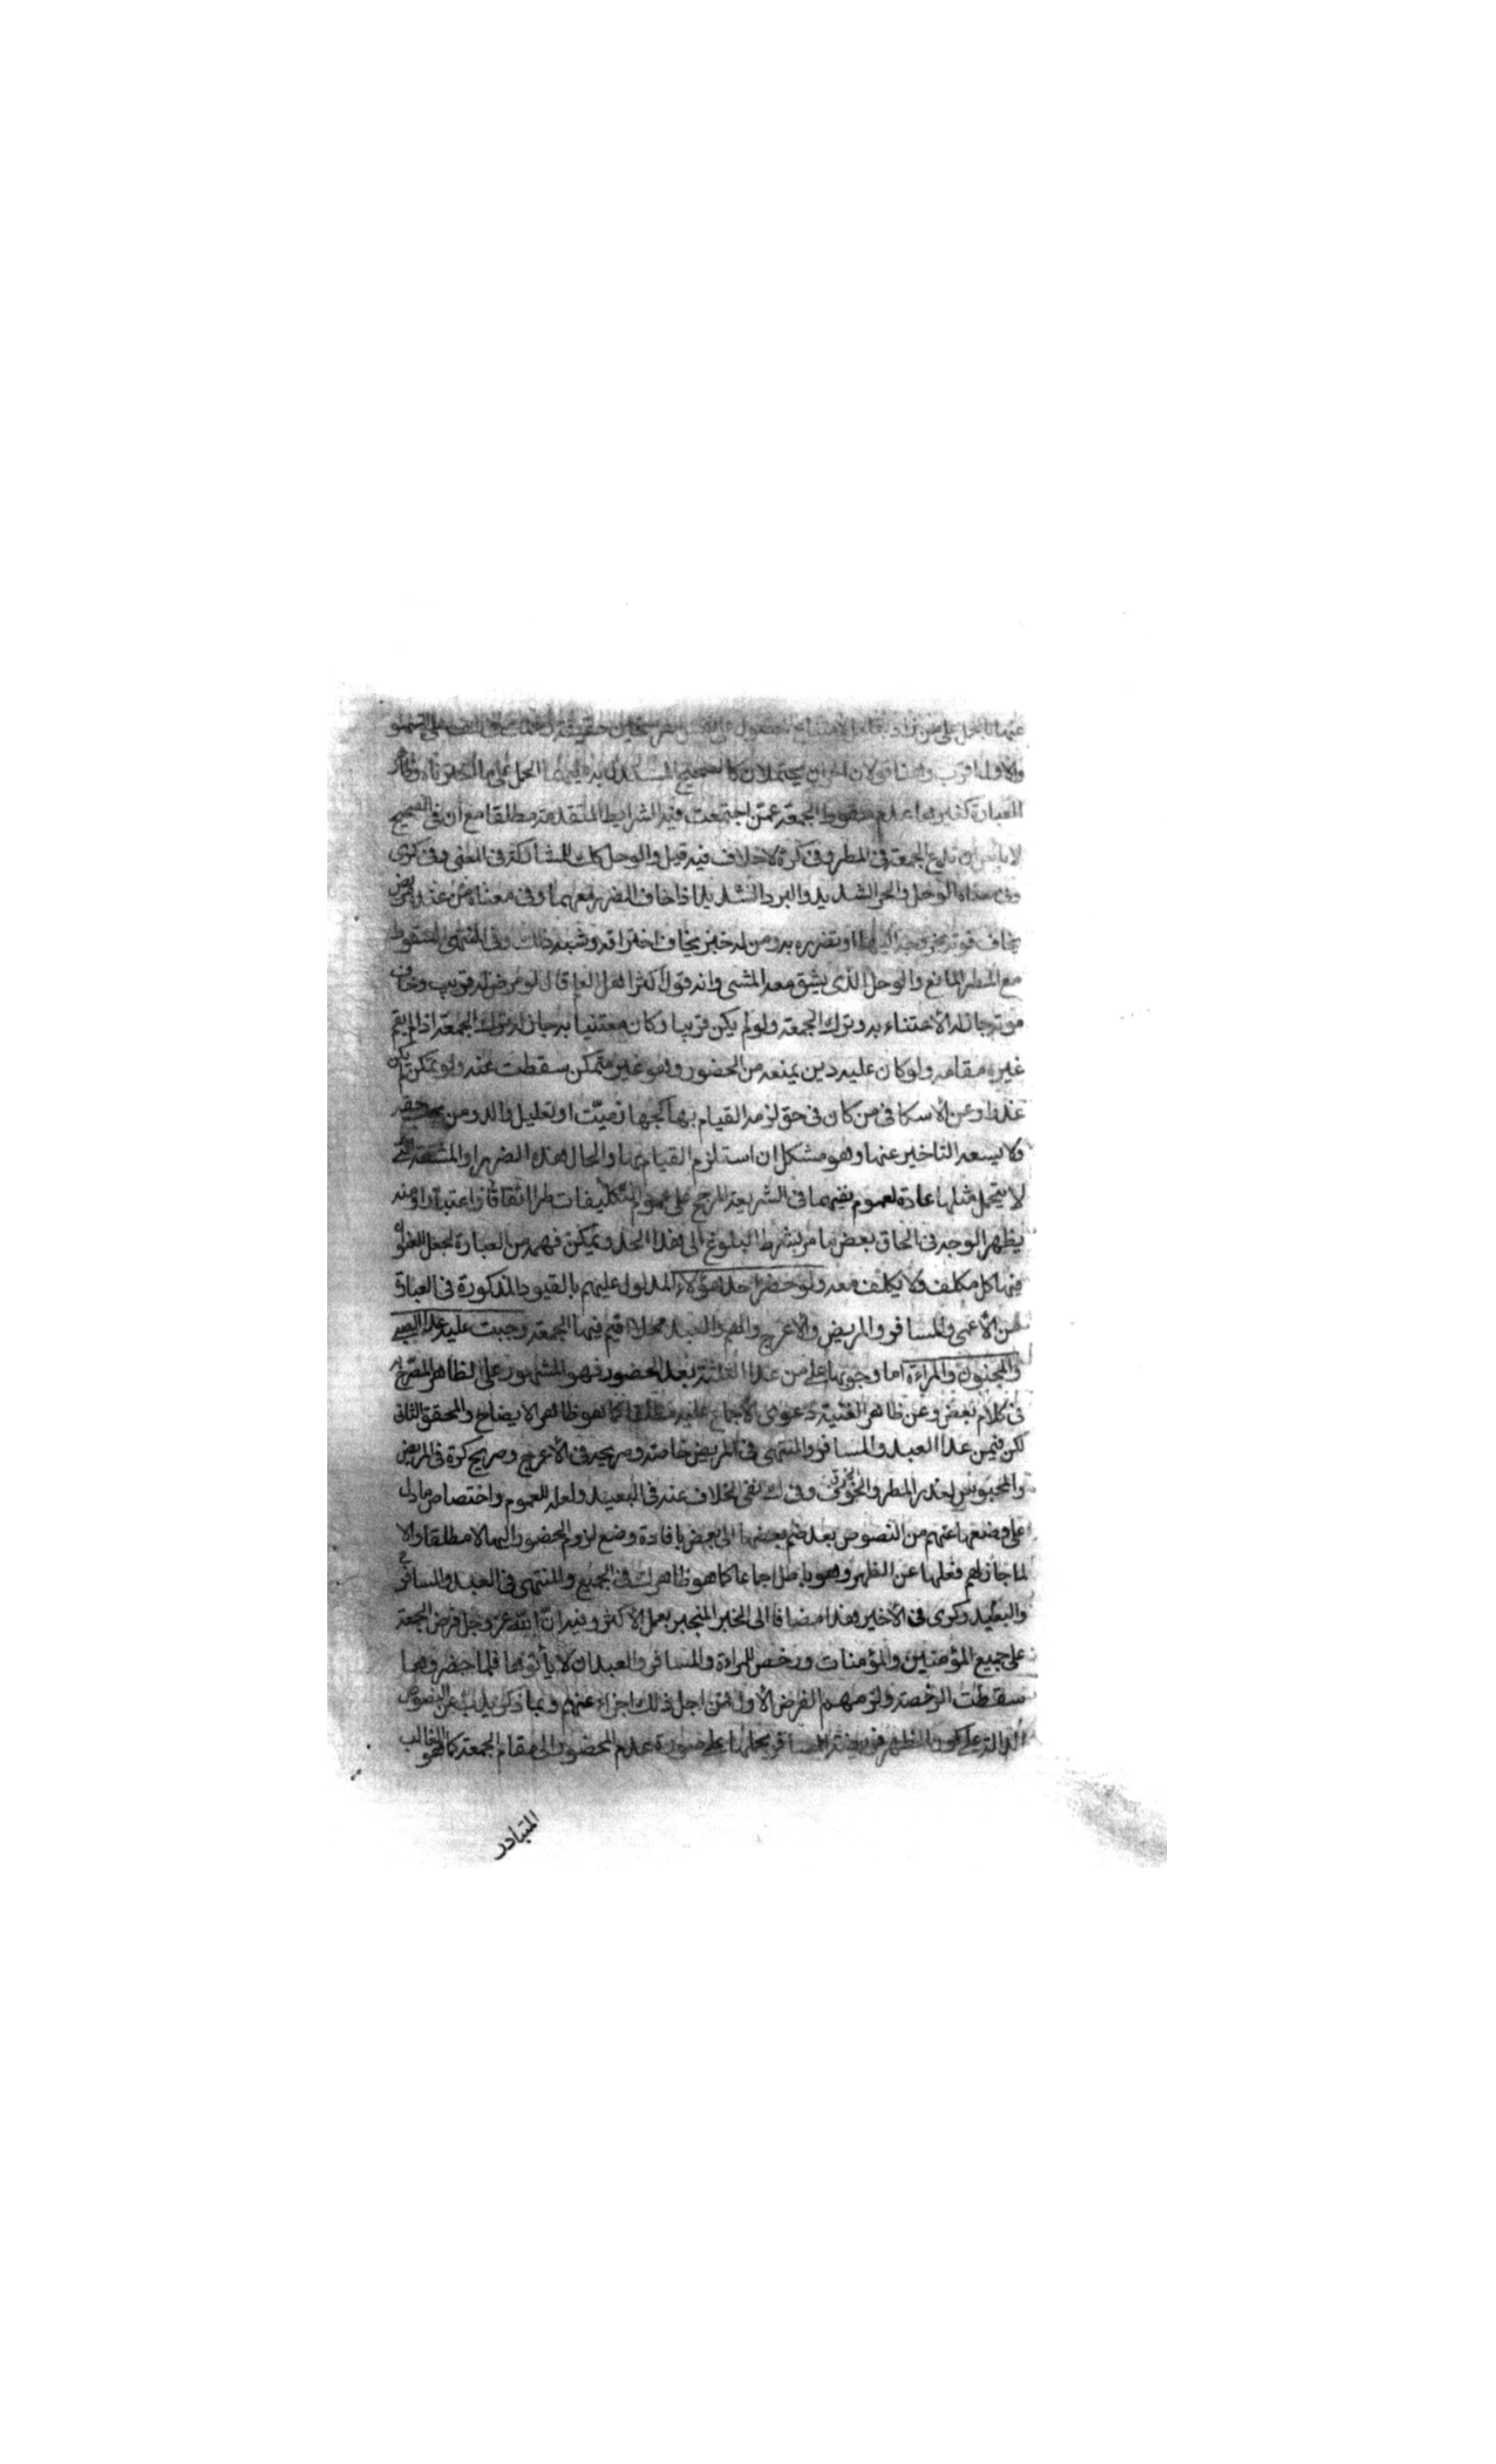 والاول اقرب
العبارة كغيرها عدم سقوط الجمعة عمن اجتمعت فيه الشرايط المتقدمة مطلقا مع ان فى الصحيح
لا باس ان تدع الجمعة فى المطر وفى كرة لا خلاف فيه قيل والوحل كذلك للمشاركة فى المعنى وفى كرى
وفى معناه الوحل والحر الشديد والبرد الشديد اذا خاف الضرر معهما وفى معناه من عنده مريض
يخاف فوته بخروجه اليها او تضرره به ومن له خبز يخاف احتراقه وشبه ذلك وفى المنتهى السقوط
مع المطر المانع والوحل الذى يشق معه المشى وانه قول اكثر اهل العلم قال لو مرض له قريب وخاف
موته جاز له الاعتناء به وترك الجمعة ولو لم يكن قريبا وكان معتنيا به جاز له ترك الجمعة اذا لم يقم
غيره مقامه ولو كان عليه دين يمنعه من الحضور وهو غير متمكن سقطت عنه ولو تمكن لم يكن
عذرا وعن الاسكافى من كان فى حق لزمه القيام بها كجهاز ميت او تعليل والد ومن يجب حقه
ولا يسعه التاخير عنها وهو مشكل ان استلزم القيام بها والحال هذه الضرر او المشقة التى
لا يتحمل مثلها عادة لعموم نفيهما فى الشريعة المرجح على عموم التكليفات طرا اتفاقا واعتبارا ومنه
يظهر الوجه فى الحاق بعض ما مر بشرط البلوغ الى هذا الحد ويمكن فهمه من العبارة لجعل العنوان
فيها كل مكلف ولا يكلف معه ولو حضر احد هؤلاء المدلول عليهم بالقيود المذكورة فى العبارة
من الأعمى والمسافر والمريض والاعرج والهم والعبد محلا اقيم فيها الجمعة وجبت عليه عدا الصبى
والمجنون والمراءة اما وجوبها على من عدا الثلثة بعد الحضور فهو المشهور على الظاهر المصرح به
فى كلام بعض وعن ظاهر الغنية دعوى الاجماع عليه مطلقا كما هو ظاهر الايضاح والمحقق الثانى
لكن فيمن عدا العبد والمسافر والمنتهى فى المريض خاصة وصريحه فى الأعرج وصريح كرة فى المريض
والمحبوس لعذر المطر والخوف وفى ك نفى الخلاف عنه فى البعيد ولعله للعموم واختصاص ما دل
على وضعها عنهم من النصوص بعد ضم بعضها الى بعض بافادة وضع لزوم الحضور اليها لا مطلقا والا
لما جاز لهم فعلها عن الظهر وهو باطل اجماعا كما هو ظاهر ك فى الجميع والمنتهى فى العبد والمسافر
والبعيد وكرى فى الأخير هذا مضافا الى الخبر المنجبر بعمل الاكثر وفيه ان الله عز وجل فرض الجمعة
على جميع المؤمنين والمؤمنات ورخص للمراءة والمسافر والعبد ان لا يأتوها فلما حضروها
سقطت الرخصة ولزمهم الفرض الأول فمن اجل ذلك اجزاء عنهم وبما ذكر يذب عن النصوص
الدالة على كون الظهر فريضة المسافر بحملها على صورة عدم الحضور الى مقام الجمعة كما هو الغالب
المتبادر